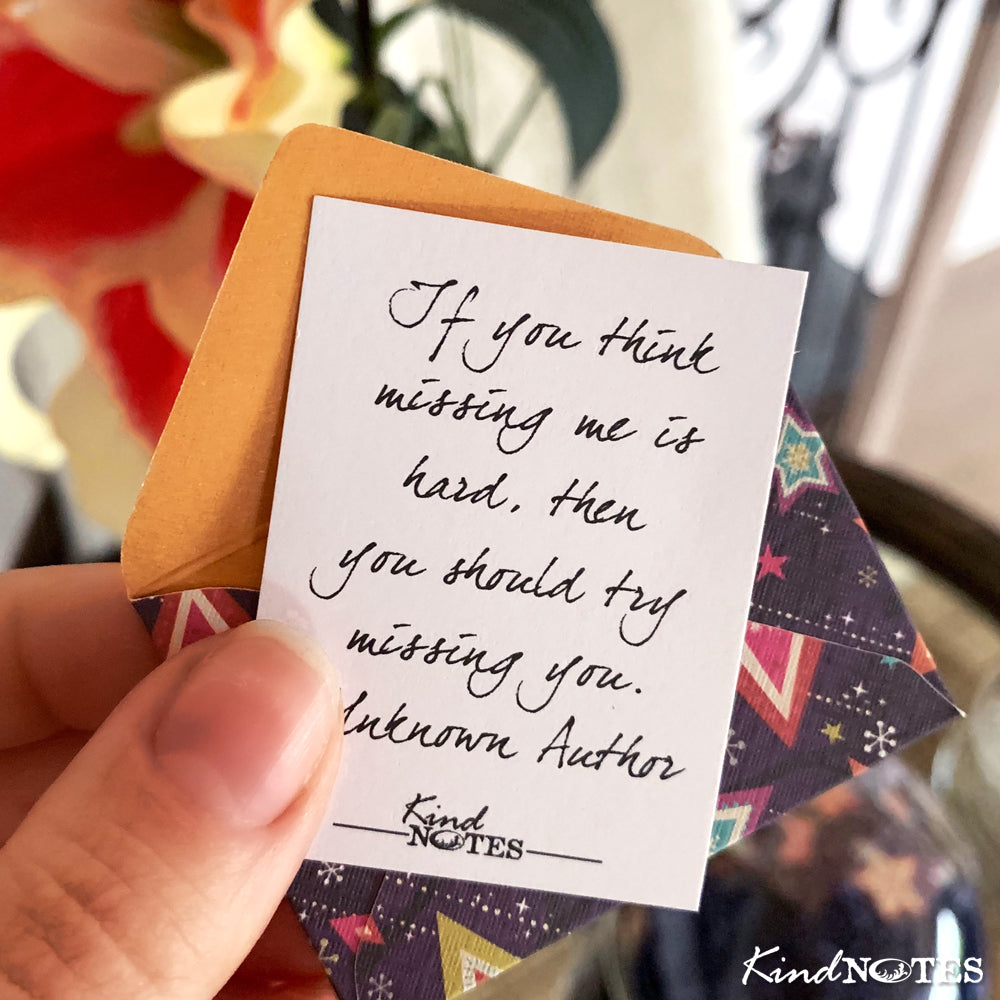 If you think
missing me is
hard, then
you should try
missing you.
Unknown Author
Kind
NOTES
KindNOTES